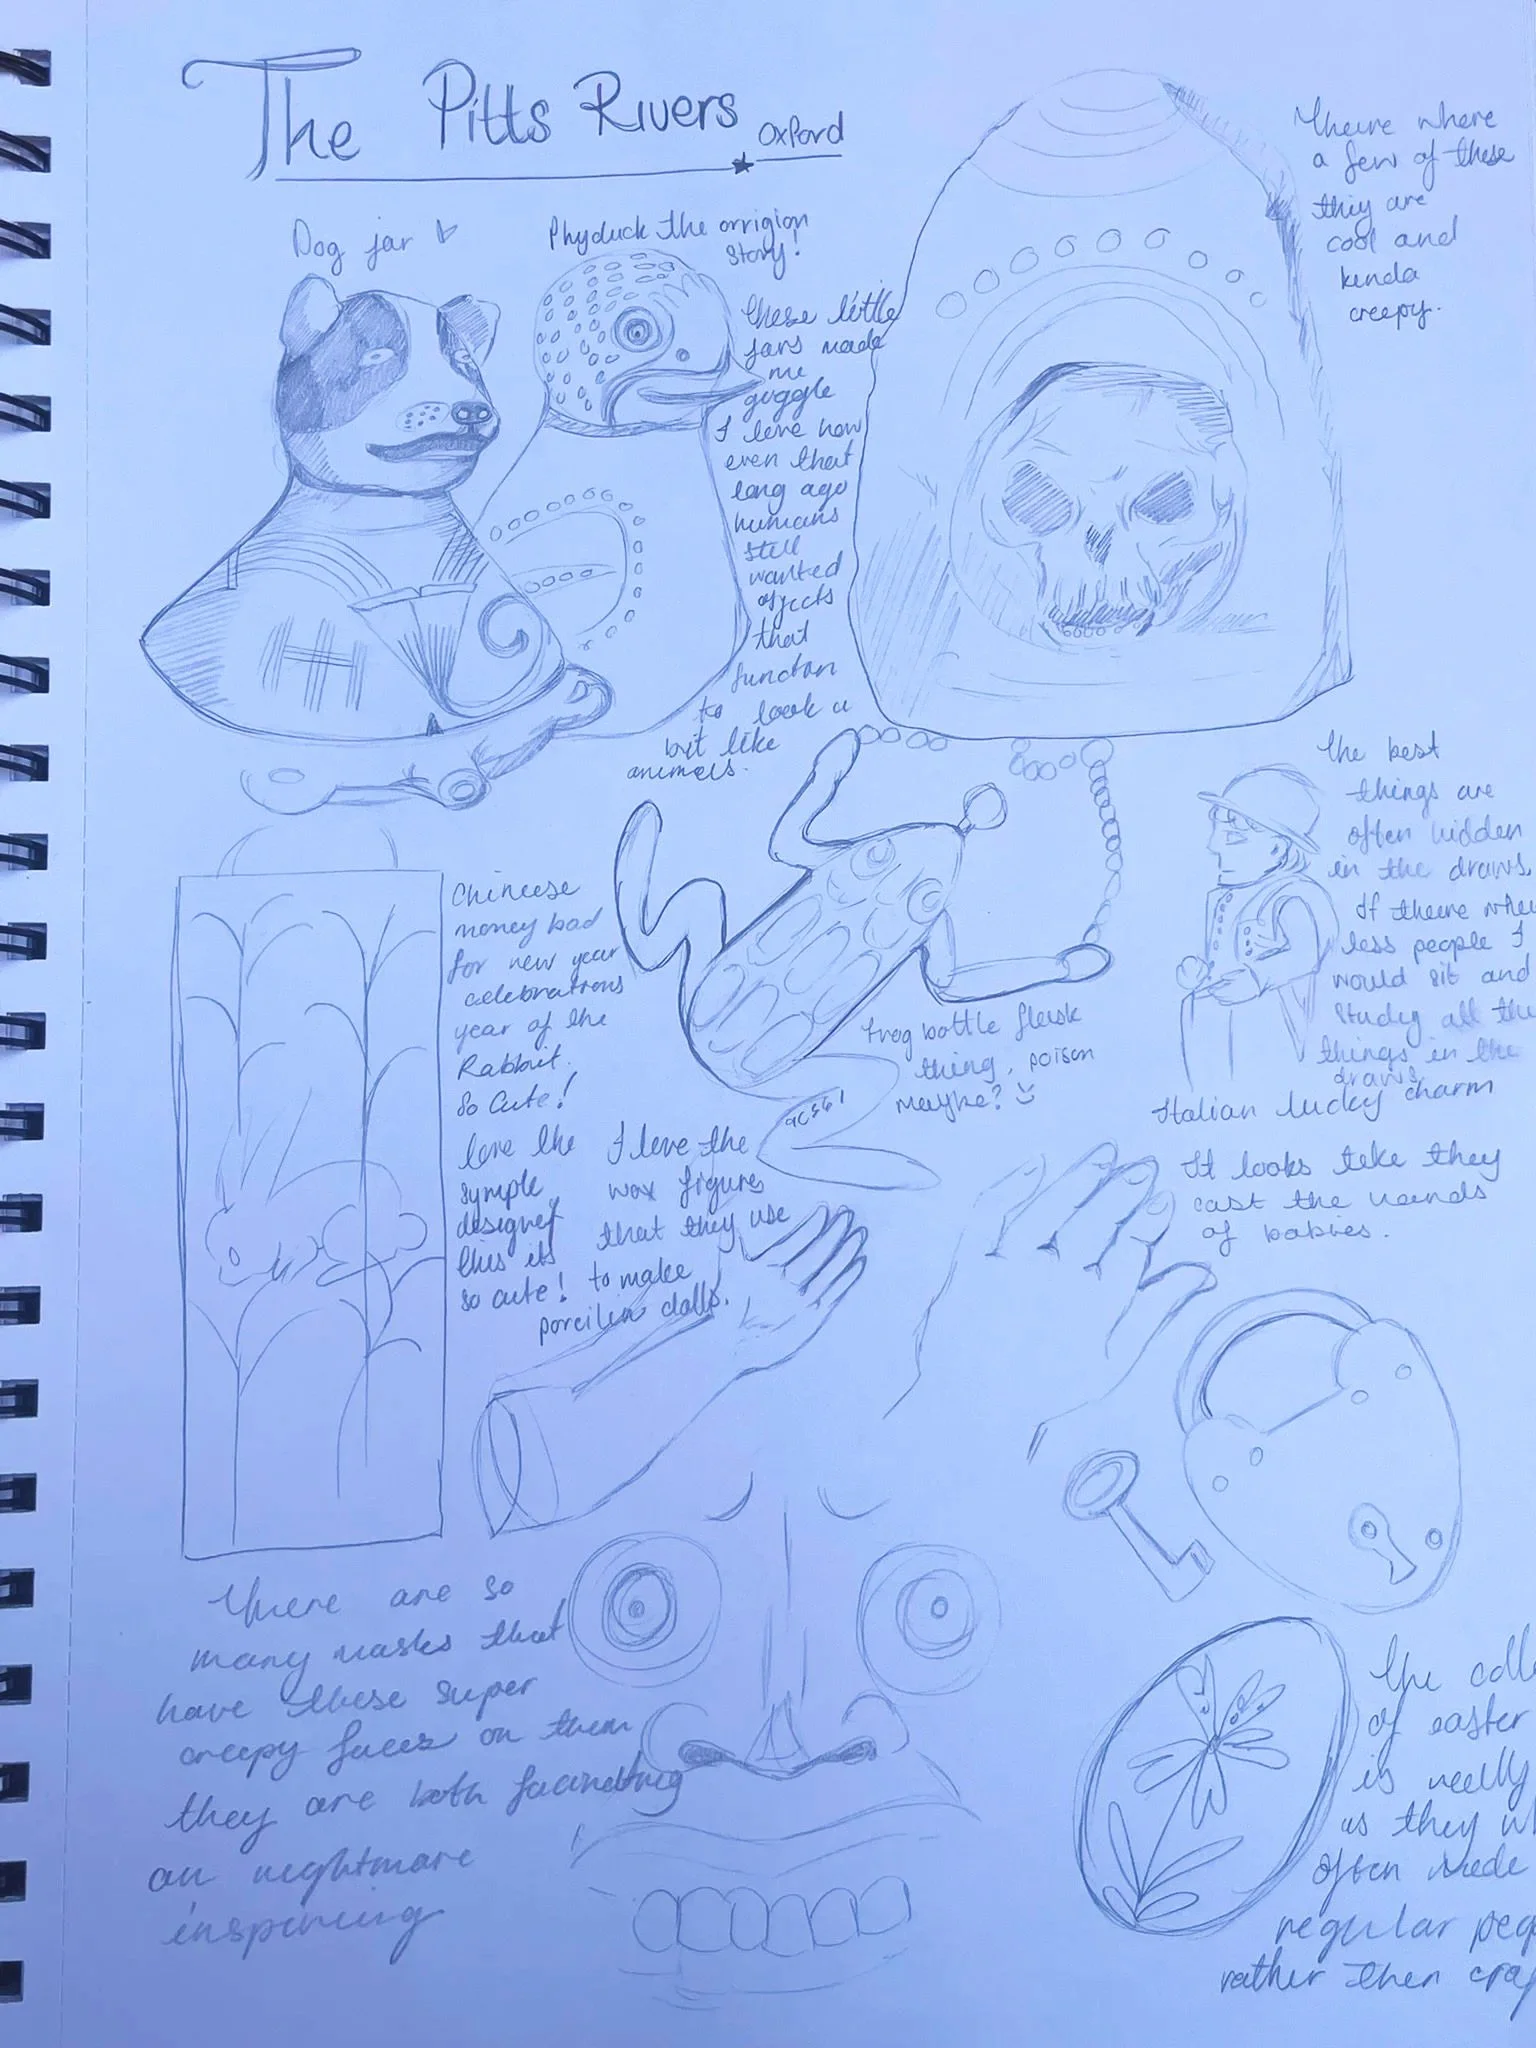 The Pitts Rivers
Oxford
Dog jar
Phyduck the orrigion
story!
These little
jars made
me
guggle
I love how
even that
long ago
humans
still
wanted
objects
that
function
to look a
bit like
animals.
Theire where
a few of these
they are
cool and
kinda
creepy.
The best
things are
often hidden
in the draws.
If theire where
less people I
would sit and
study all the
things in the
draws.
Italian lucky charm
Frog bottle flask
thing, poison
maybe?
Chineese
money bad
for new year
celebrations
year of the
Rabbit.
So cute!
love the
symple
designef
this is
so cute!
I love the
wax figures
that they use
to make
porcilin dolls.
It looks like they
cast the hands
of babies.
There are so
many masks that
have these super
creepy faces on them
they are both
an nightmare
inspiring
The
of easter
is really
as they
often made
regular
rather then